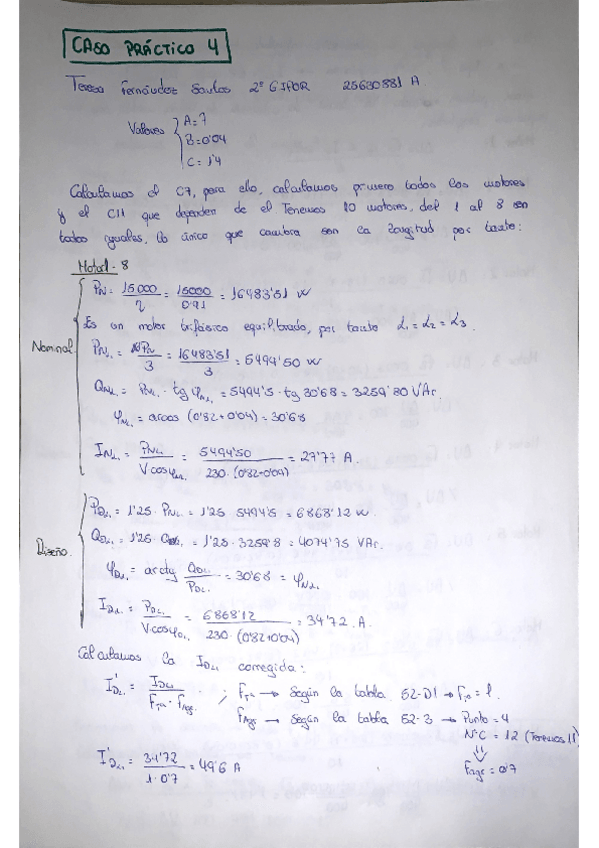 CASO PRÁCTICO 4
Teresa Fernández Santos 2º GIPOR 25630881 A
Valores A=7
B=0'04
C=1'4
Calculamos el C7, para ello, calculamos primero todos los motores
y el C11 que dependen de el Tenemos 10 motores, del 1 al 8 son
todos iguales, lo único que cambia son la longitud por tanto:
Motor 1-8
Nominal
PN = 15000/η = 15000/0'91 = 16483'51 W
Es un motor trifásico equilibrado, por tanto L1 = L2 = L3.
PNL1 = PN/3 = 16483'51/3 = 5494'50 W
QNL1 = PNL1 · tg φNL1 = 5494'5 · tg 30'68 = 3259'80 VAr.
φNL1 = arcos (0'82+0'04) = 30'68
INL1 = PNL1/V cosφNL1 = 5494'50/230·(0'82+0'04) = 27'77 A.
Diseño.
PDL1 = 1'25 · PNL1 = 1'25 · 5494'5 = 6868'12 W.
QDL1 = 1'25 · QNL1 = 1'25 · 3259'8 = 4074'75 VAr.
φDL1 = arctg QDL1/PDL1 = 30'68 = φNL1
IDL1 = PDL1/V·cosφDL1 = 6868'12/230·(0'82+0'04) = 34'72 A.
Calculamos la IDL1 corregida:
I'DL1 = IDL1/FTª·FAgr ; FTª → Según la tabla 52-D1 → FTª = 1.
FAgr → Según la tabla 52-3 → Punto = 4
NºC = 12 (Tenemos 11)
⇓
Fagr = 0'7
I'DL1 = 34'72/1·0'7 = 49'6 A